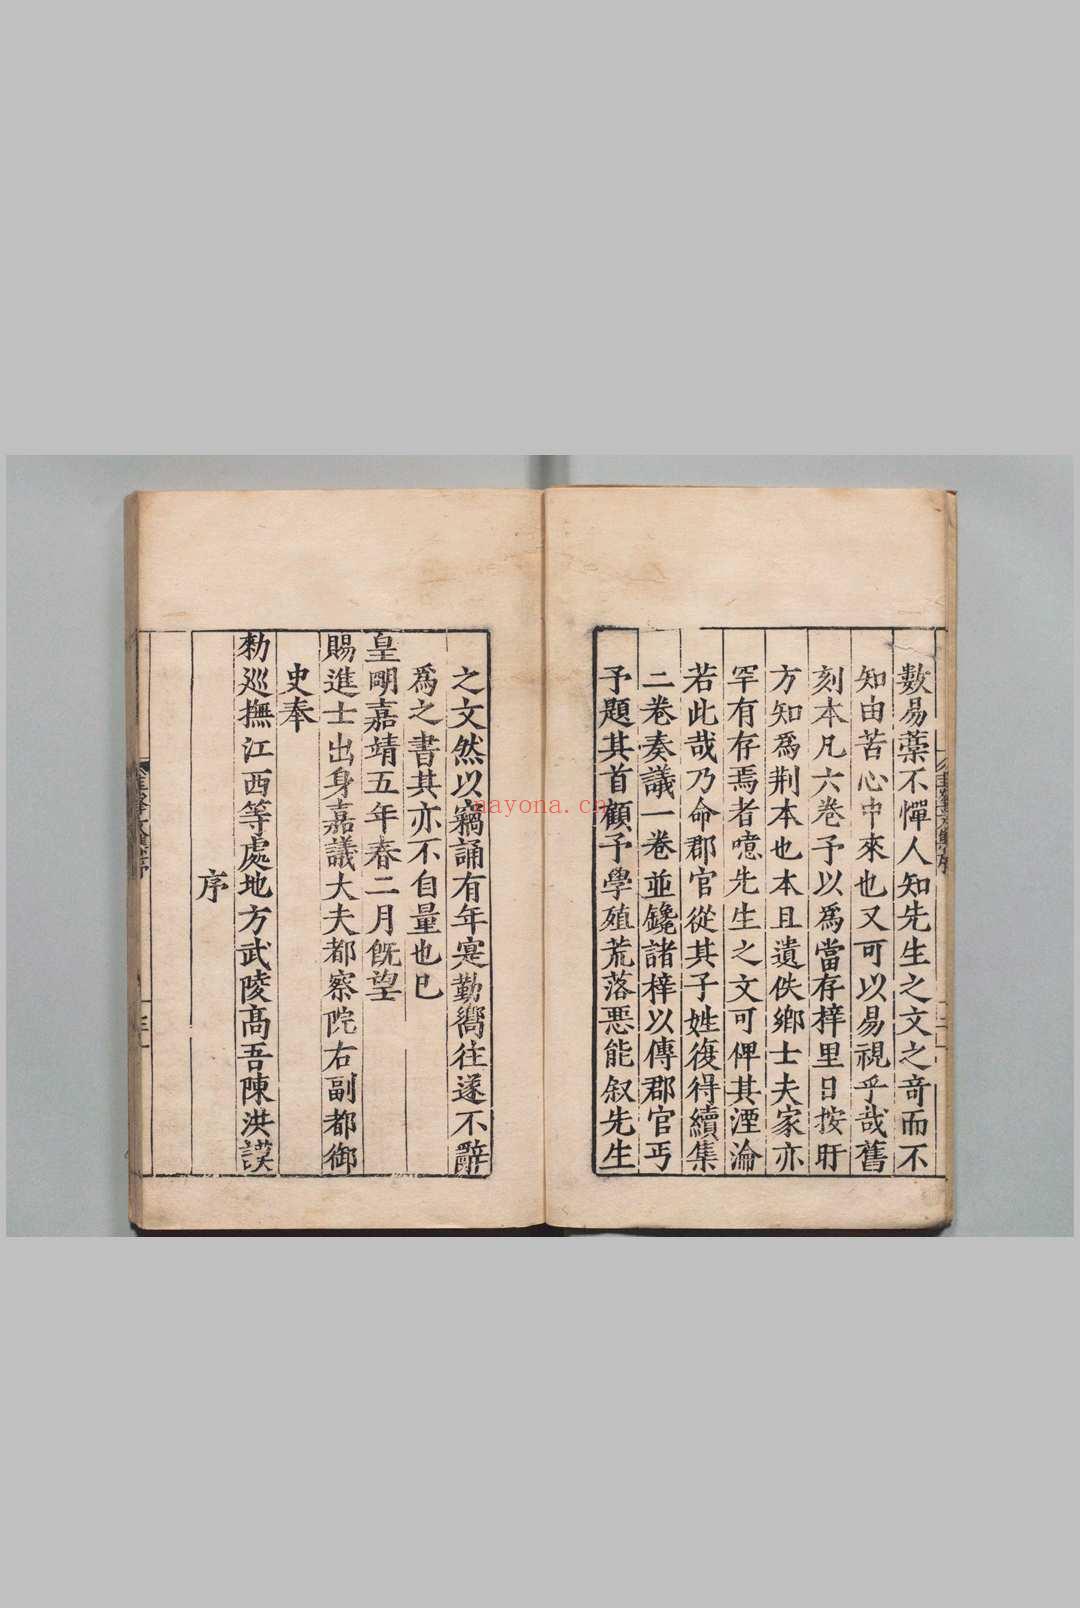 數易藁不憚人知先生之文之奇而不
知由苦心中來也又可以易視乎哉舊
刻本凡六卷予以爲當存梓里日按盱
方知爲荆本也本且遺佚鄉士夫家亦
罕有存焉者噫先生之文可俾其湮淪
若此哉乃命郡官從其子姓復得續集
二卷奏議一卷並鑱諸梓以傳郡官丐
予題其首顧予學殖荒落惡能叙先生
之文然以竊誦有年寔勤嚮往遂不辭
爲之書其亦不自量也已
皇明嘉靖五年春二月旣望
賜進士出身嘉議大夫都察院右副都御
史奉
勑巡撫江西等處地方武陵高吾陳洪謨
序
nayona.cn